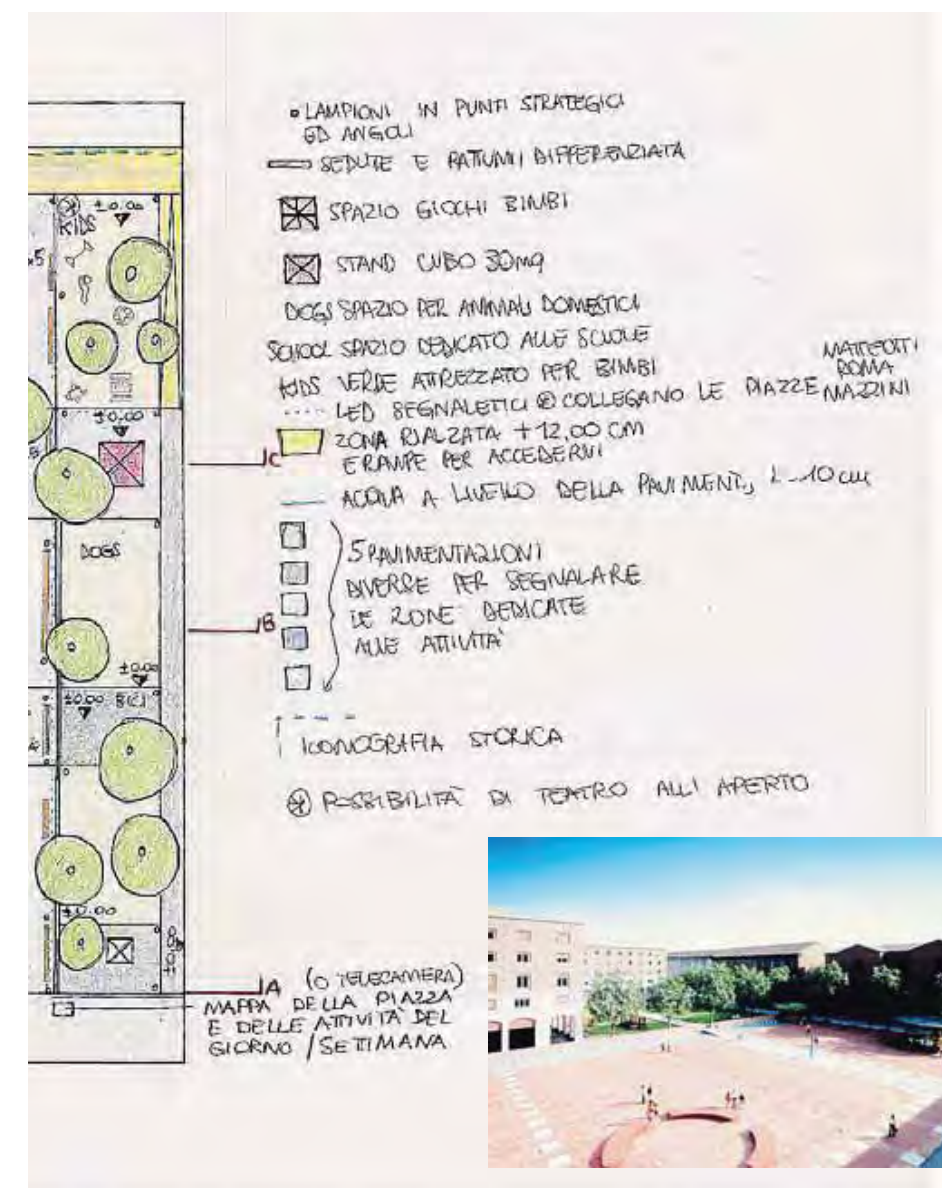 LAMPIONI IN PUNTI STRATEGICI
ED ANGOLI
SEDUTE E RATTUMI DIFFERENZIATA
SPAZIO GIOCHI BIMBI
STAND CUBO 30mq
DOGS SPAZIO PER ANIMALI DOMESTICI
SCHOOL SPAZIO DEDICATO ALLE SCUOLE
KIDS VERDE ATTREZZATO PER BIMBI
LED SEGNALETICI COLLEGANO LE PIAZZE MATTEOTTI
ROMA
MAZZINI
ZONA RIALZATA +12,00 CM
E RAMPE PER ACCEDERVI
ACQUA A LIVELLO DELLA PAVIMENT., 10 cm
5 PAVIMENTAZIONI
DIVERSE PER SEGNALARE
LE ZONE DEDICATE
ALLE ATTIVITÀ
ICONOGRAFIA STORICA
POSSIBILITÀ DI TEATRO ALL' APERTO
A (O TELECAMERA)
MAPPA DELLA PIAZZA
E DELLE ATTIVITÀ DEL
GIORNO / SETIMANA
±0.00
KIDS
±0.00
C
DOGS
B
±0.00
±0.00
±0.00
±0.00